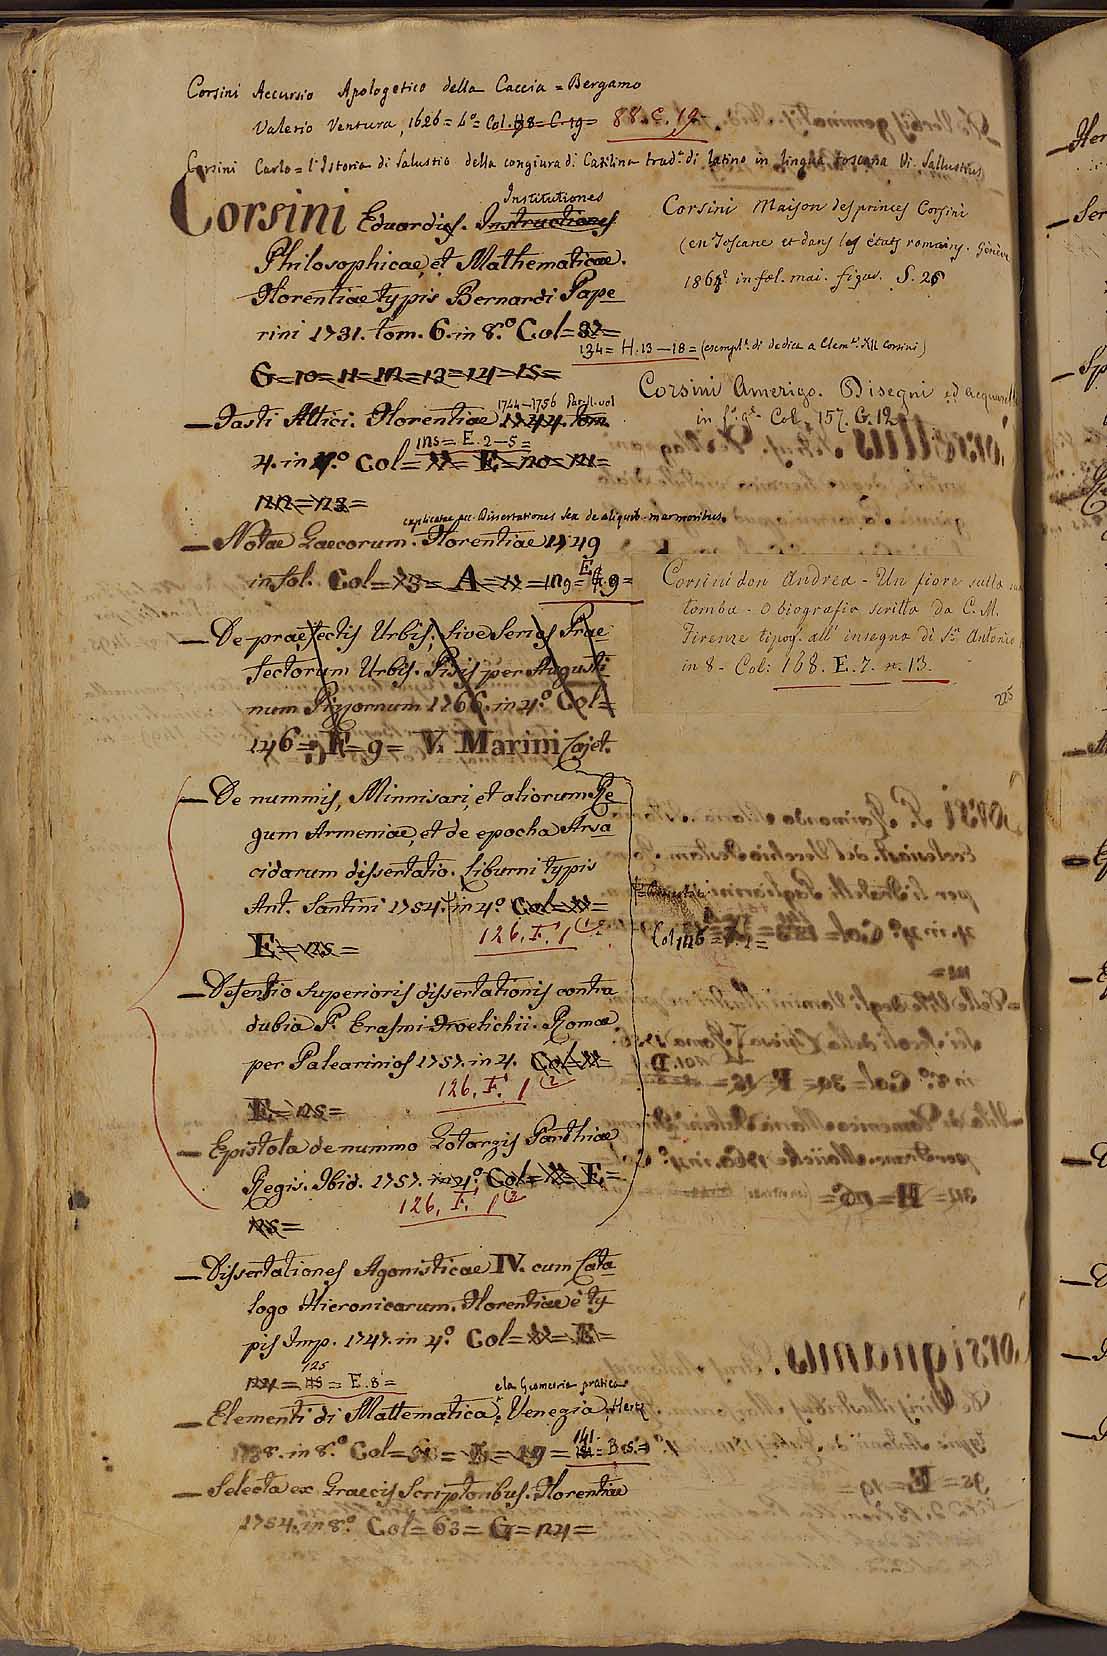 Corsini Accursio Apologetico della Caccia = Bergamo
Valerio Ventura, 1626 = 4º = Col. 88 = C. 19 = 88. C. 19
Corsini Carlo = l'Istoria di Salustio della congiura di Catilina trad.ª di latino in lingua toscana Vi. Sallustius
Institutiones
Corsini Eduardis. Instructiones
Philosophicae, et Mathematicae.
Florentiae typis Bernardi Pape
rini 1731. tom. 6. in 8.º Col = 37 =
134 = H. 13 — 18 = (esempl.e di dedica a Clem.te XII Corsini)
G = 10 = 11 = 12 = 13 = 14 = 15 =
1744—1756 Par. vol
— Fasti Attici. Florentiae 1744. tom.
125 = E. 2 — 5 =
4. in 4.º Col = 11 = E = 120 = 121 =
122 = 123 =
explicatae acc. Dissertationes sex de aliquib. marmoribus.
— Notae Graecorum. Florentiae 1749
in fol. Col = 73 = A = 11 = 119 = E. 9 =
— De praefectis Urbis, sive Series Prae
fectorum Urbis. Pisis per Augusti
num Pizzornum 1766. in 4.º Col =
146 = F = 9 = V. Marini Cajet.
— De nummis, Minnisari, et aliorum Re
gum Armeniae, et de epocha Arsa
cidarum dissertatio. Liburni typis
Ant. Santini 1754. in 4.º Col = 11 =
E = 125 = 126. F. 1 (1
— Defentio superioris dissertationis contra
dubia P. Erasmi Froelichii. Romae
per Palearinios 1757. in 4. Col = 11 =
126. F. 1 (2
E = 125 =
— Epistola de nummo Gotarzis Parthiae
Regis. Ibid. 1757. in 4.º Col = 11 = E =
126. F. 1 (3
125 =
— Dissertationes Agonisticae IV. cum Cata
logo Hieronicarum. Florentiae è ty
pis Imp. 1747. in 4.º Col = 11 = E =
125
124 = 115 = E. 8 =
e la Geometria pratica
— Elementi di Mattematica. Venezia, Hertz
1738. in 8.º Col = 61 = = 19 = 141. = B. 5. =
— Selecta ex Graecis Scriptoribus. Florentiae
1754. in 8.º Col = 63 = G = 124 =
Corsini Maison des princes Corsini
(en Toscane et dans les états romains. Genève
in fol. mai. figur. S. 26
Corsini Amerigo. Disegni ed acquarelli
in f.º g.e Col. 157. G. 12
Corsini don Andrea - Un fiore sulla sua
tomba - O biografia scritta da C. M.
Firenze tipog. all' insegna di S.n Antonio
in 8 - Col: 168. E. 7. n. 13.
225
Col 146 = F. 2 =